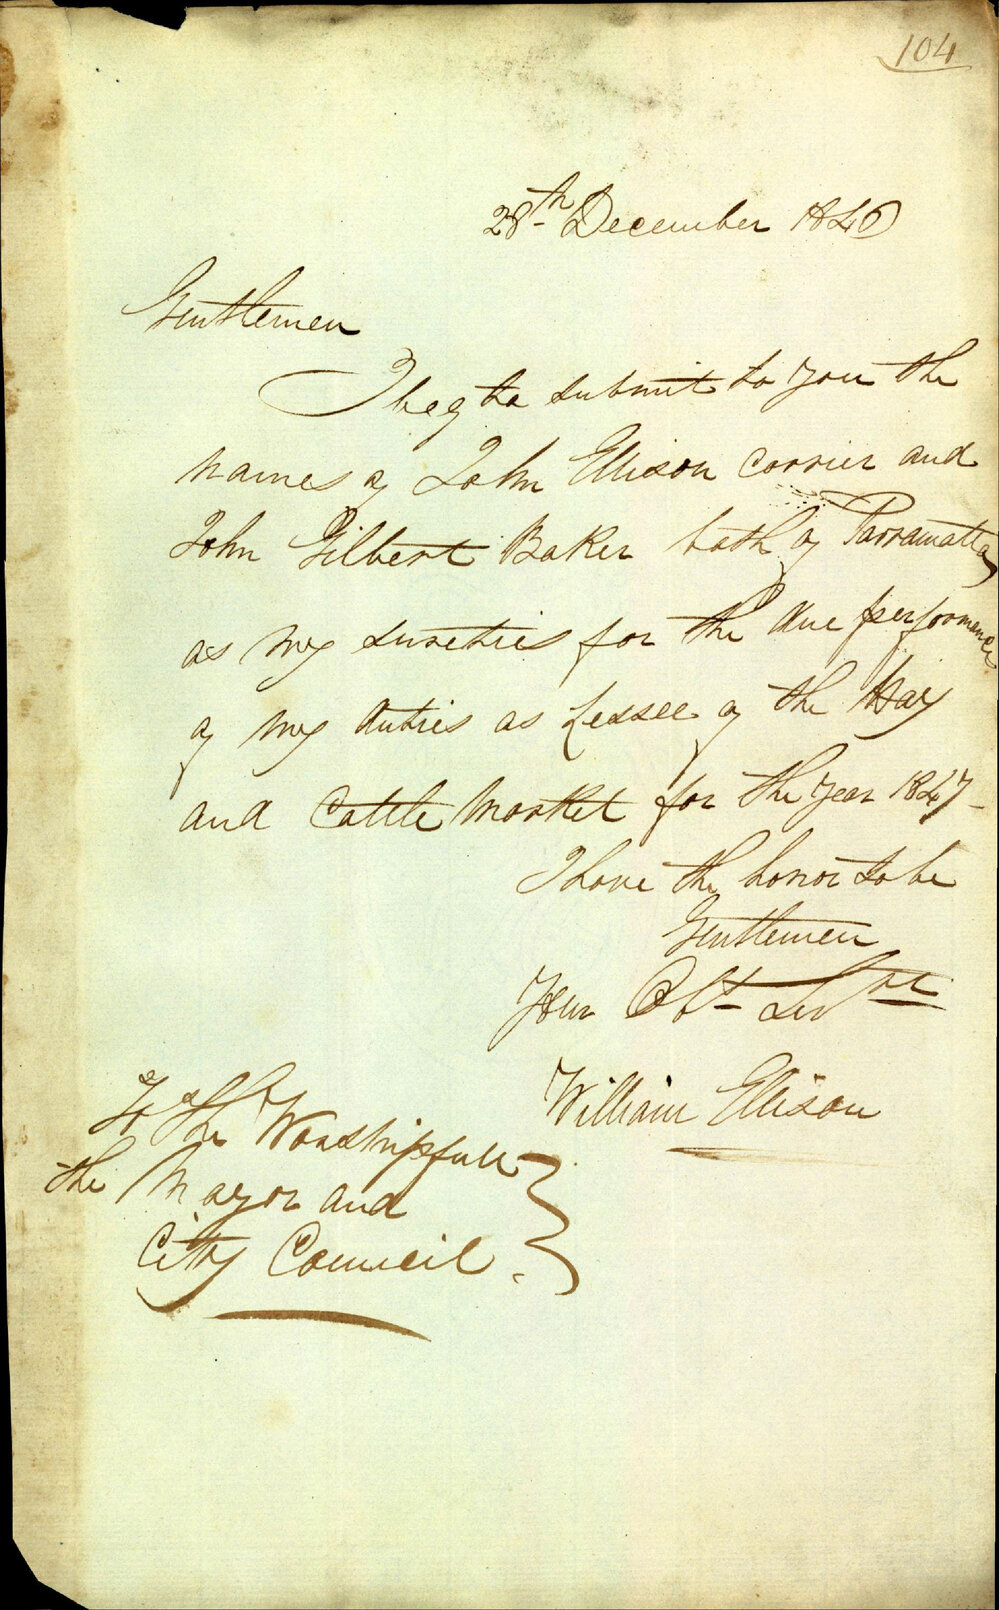 104
28th December 1846
Gentlemen
I beg to submit to you the
names of John Ellison Carrier and
John Gilbert Baker both of Parramatta
as my sureties for the due performance
of my duties as Lessee of the Hay
and Cattle Market for the year 1847 -
I have the honor to be
Gentlemen
Your Obt Servt
William Ellison
To the Worshipfull
the Mayor and
City Council.